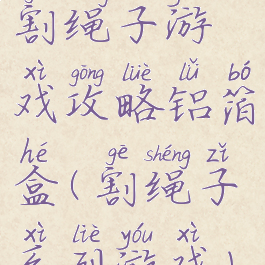 割绳子游
xì gōng lüè lǚ bó
戏攻略铝箔
hé gē shéng zǐ
盒(割绳子
xì liè yóu xì
系列游戏)